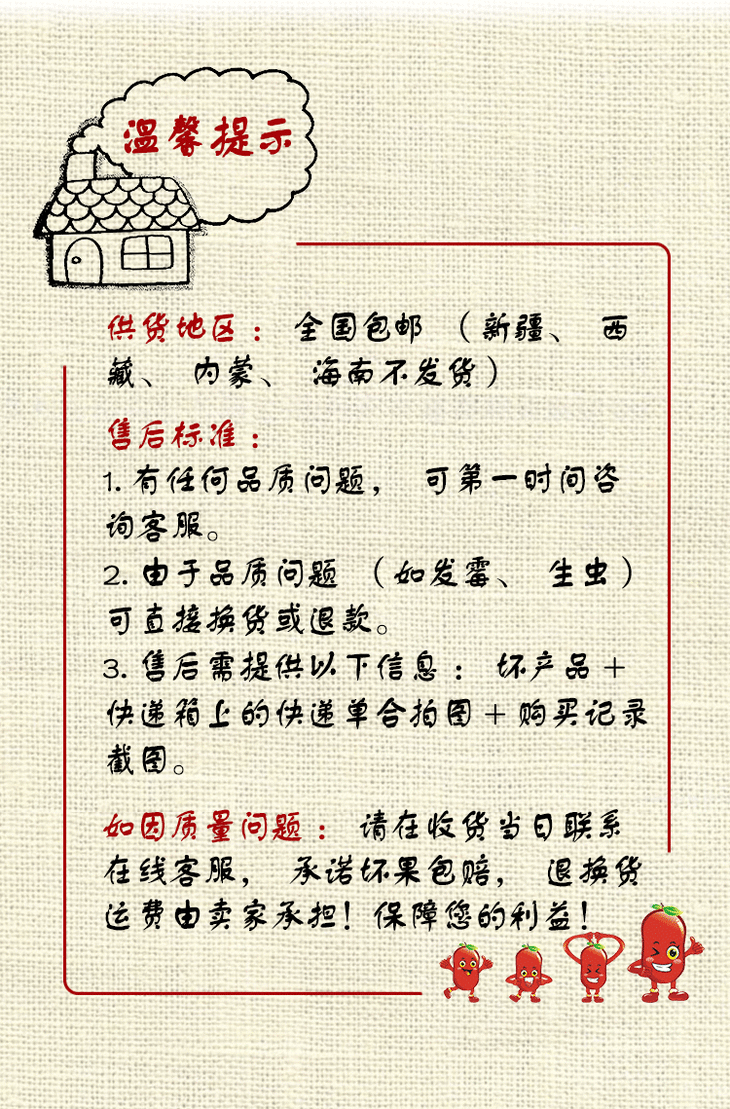 温馨提示
供货地区：全国包邮（新疆、西
藏、内蒙、海南不发货）
售后标准：
1. 有任何品质问题，可第一时间咨
询客服。
2. 由于品质问题（如发霉、生虫）
可直接换货或退款。
3. 售后需提供以下信息：坏产品+
快递箱上的快递单合拍图+购买记录
截图。
如因质量问题：请在收货当日联系
在线客服，承诺坏果包赔，退换货
运费由卖家承担！保障您的利益！